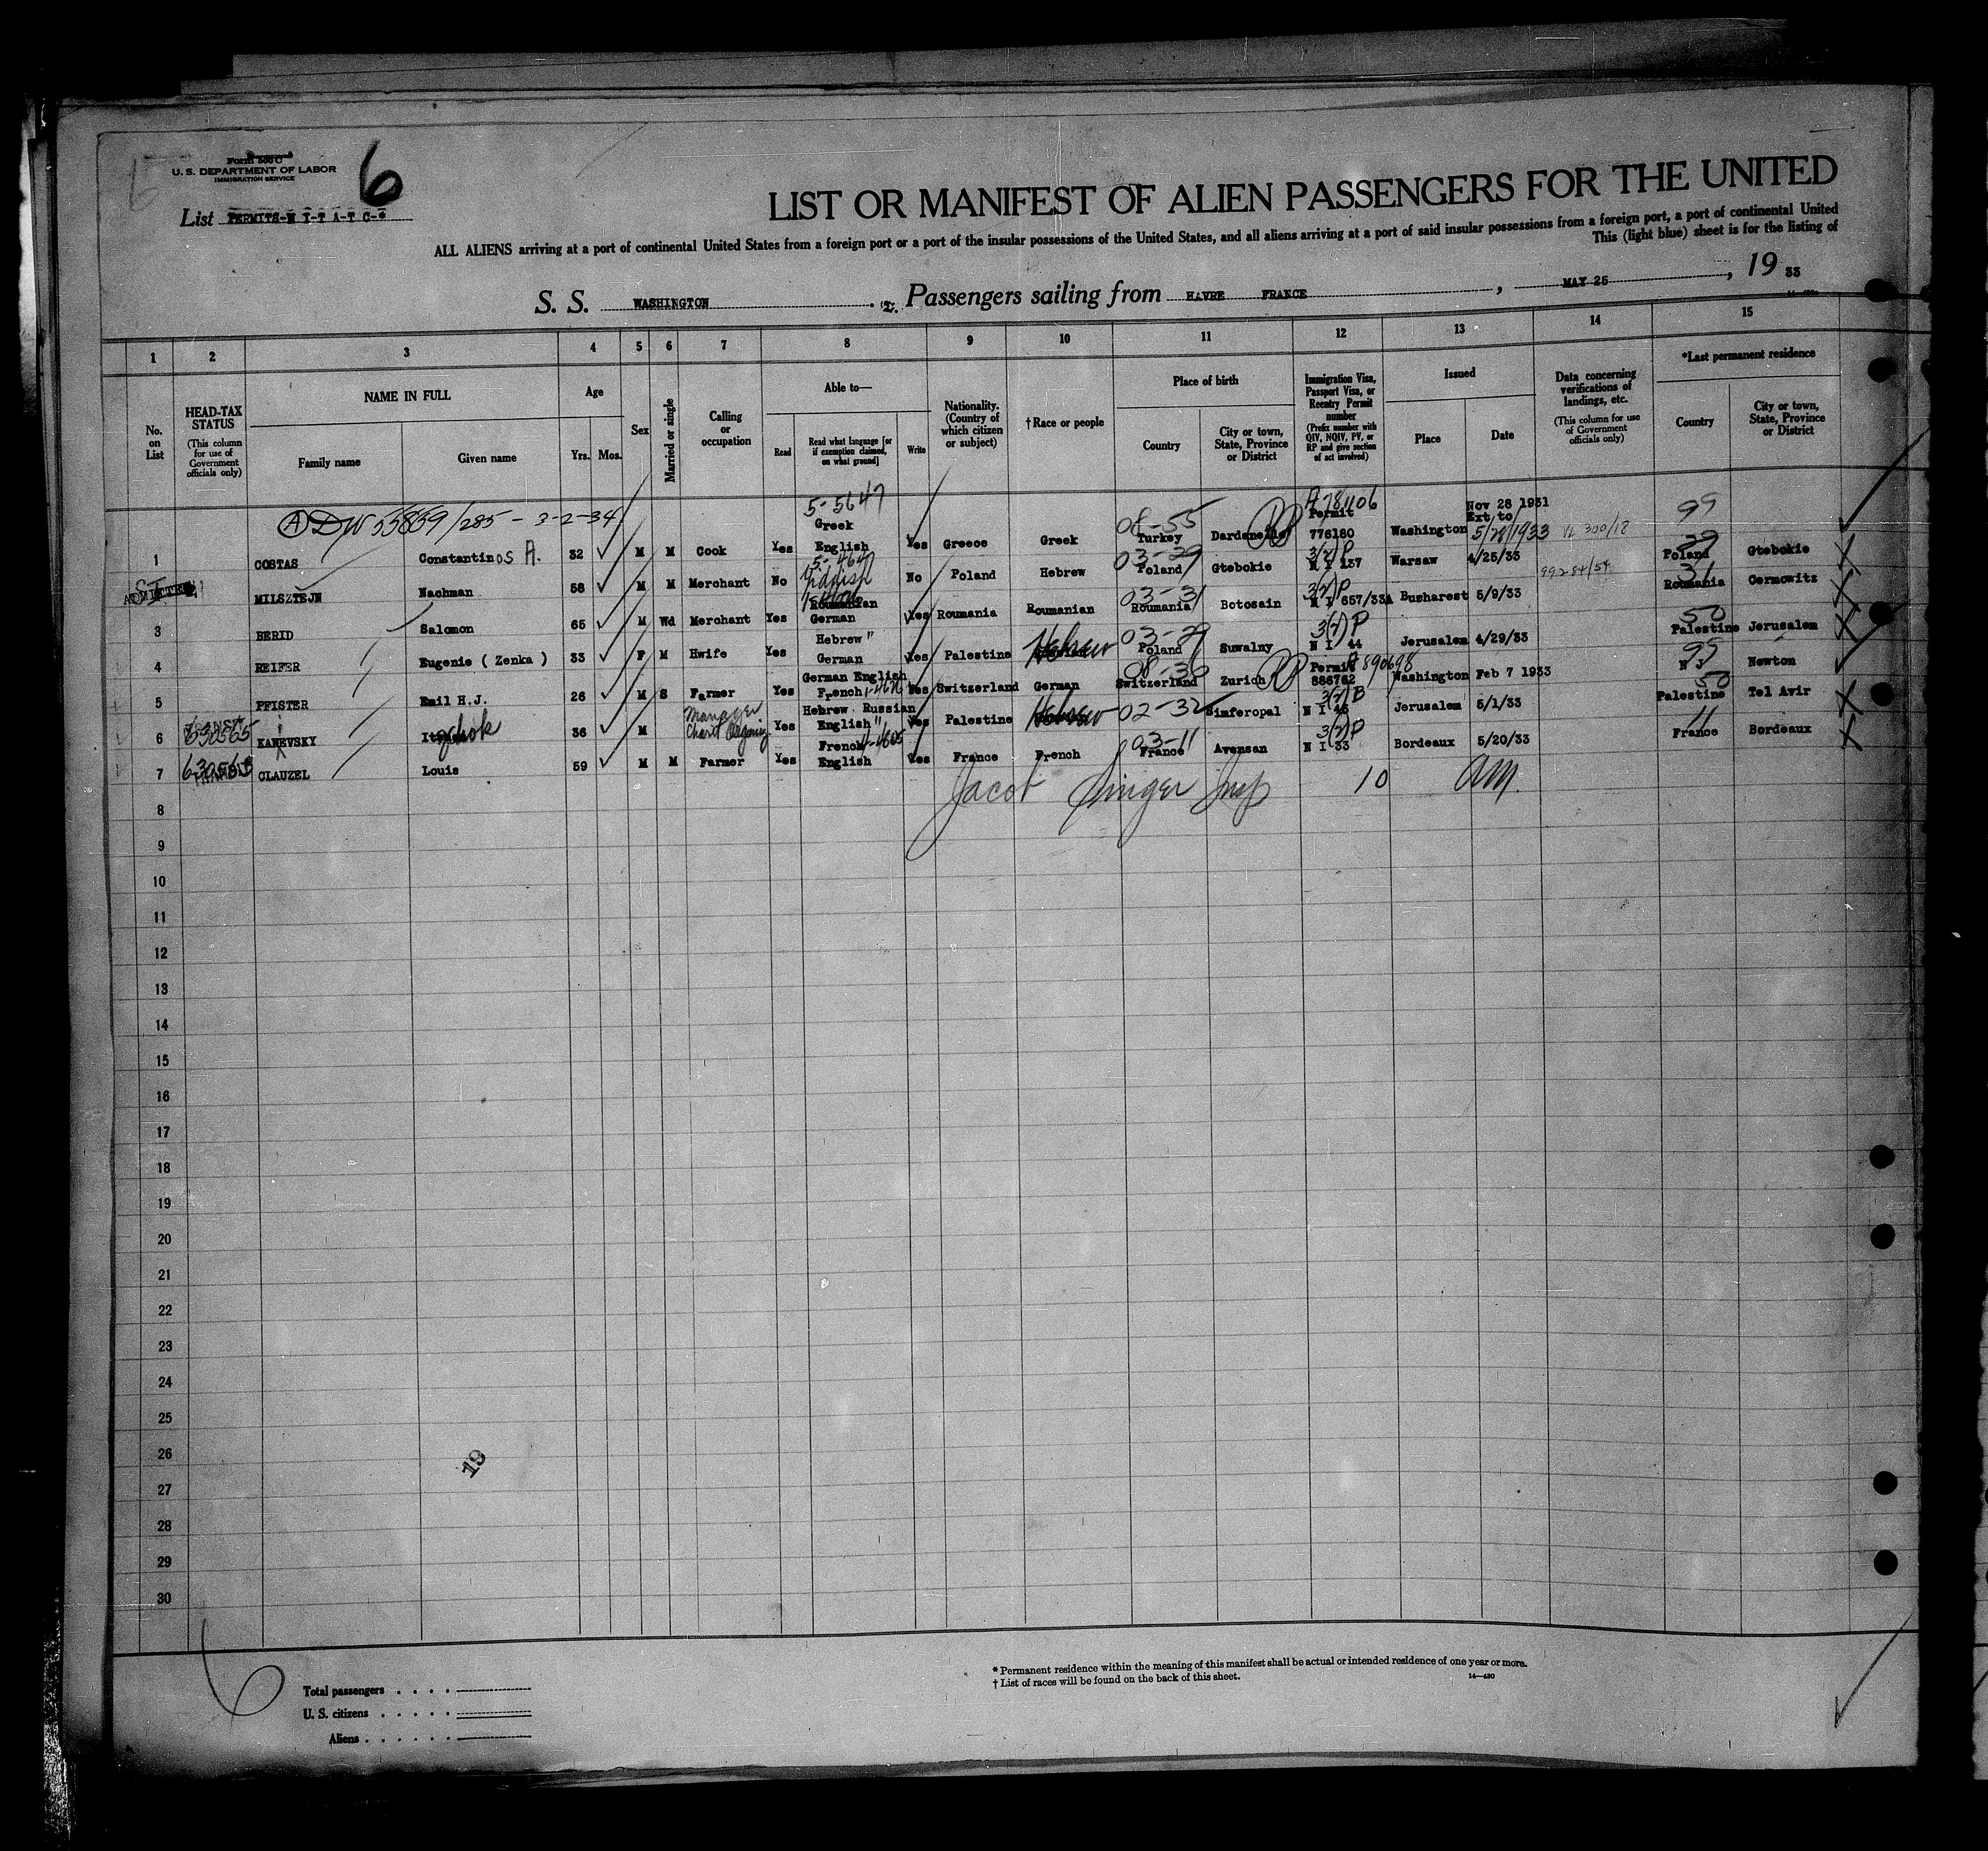 Form 500 C
U. S. DEPARTMENT OF LABOR
IMMIGRATION SERVICE
6
List PERMITS-N I-T A-T C-*
LIST OR MANIFEST OF ALIEN PASSENGERS FOR THE UNITED
ALL ALIENS arriving at a port of continental United States from a foreign port or a port of the insular possessions of the United States, and all aliens arriving at a port of said insular possessions from a foreign port, a port of continental United
This (light blue) sheet is for the listing of
S. S. WASHINGTON Passengers sailing from HAVRE FRANCE , MAY 25 , 19 33
1 2 3 4 5 6 7 8 9 10 11 12 13 14 15
No. on List
HEAD-TAX STATUS (This column for use of Government officials only)
NAME IN FULL Family name Given name
Age Yrs. Mos.
Sex
Married or single
Calling or occupation
Able to— Read Read what language [or if exemption claimed, on what ground] Write
Nationality. (Country of which citizen or subject)
†Race or people
Place of birth Country City or town, State, Province or District
Immigration Visa, Passport Visa, or Reentry Permit number (Prefix number with QIV, NQIV, PV, or RP and give section of act involved)
Issued Place Date
Data concerning verifications of landings, etc. (This column for use of Government officials only)
*Last permanent residence Country City or town, State, Province or District
A DW 55869/285 - 3-2-34 5-5647 08-55 A 781106 99
1 COSTAS Constantinos A. 32 M M Cook Yes Greek English Yes Greece Greek Turkey Permit 776180 Washington Nov 28 1931 Ext to 5/28/1933
ADMITTED 03-29 3(2)P
MILSZTEJN Nachman 58 M M Merchant No Yiddish No Poland Hebrew Poland Gtebokie N I 137 Warsaw 4/25/33 99284/54 Poland Gtebokie
03-31 3(2)P 31
3 BERID Salomon 65 M Wd Merchant Yes Roumanian German Yes Roumania Roumanian Roumania Botosain N I 657/33A Bucharest 5/9/33 Roumania Cernowitz
03-29 3(2)P 50
4 REIFER Eugenie ( Zenka ) 33 F M Hwife Yes Hebrew " German Yes Palestine Hebrew Poland Suwalny N I 44 Jerusalem 4/29/33 Palestine Jerusalem
08-36 890698 99
5 PFISTER Emil H.J. 26 M S Farmer Yes German English French Yes Switzerland German Switzerland Zurich Permit 886762 Washington Feb 7 1933 N J Newton
630565 02-32 50
6 KANEVSKY Itzchok 36 M Manager Yes Hebrew Russian English " Yes Palestine Hebrew Simferopal N I 45 Jerusalem 5/1/33 Palestine Tel Avir
03-11 3(2)P 11
7 CLAUZEL Louis 59 M M Farmer Yes French English Yes France French France Avensan N I 33 Bordeaux 5/20/33 France Bordeaux
8 Jacob Singer Insp 10 am.
9
10
11
12
13
14
15
16
17
18
19
20
21
22
23
24
25
26
19
27
28
29
30
6
* Permanent residence within the meaning of this manifest shall be actual or intended residence of one year or more.
† List of races will be found on the back of this sheet. 14—430
Total passengers
U. S. citizens
Aliens